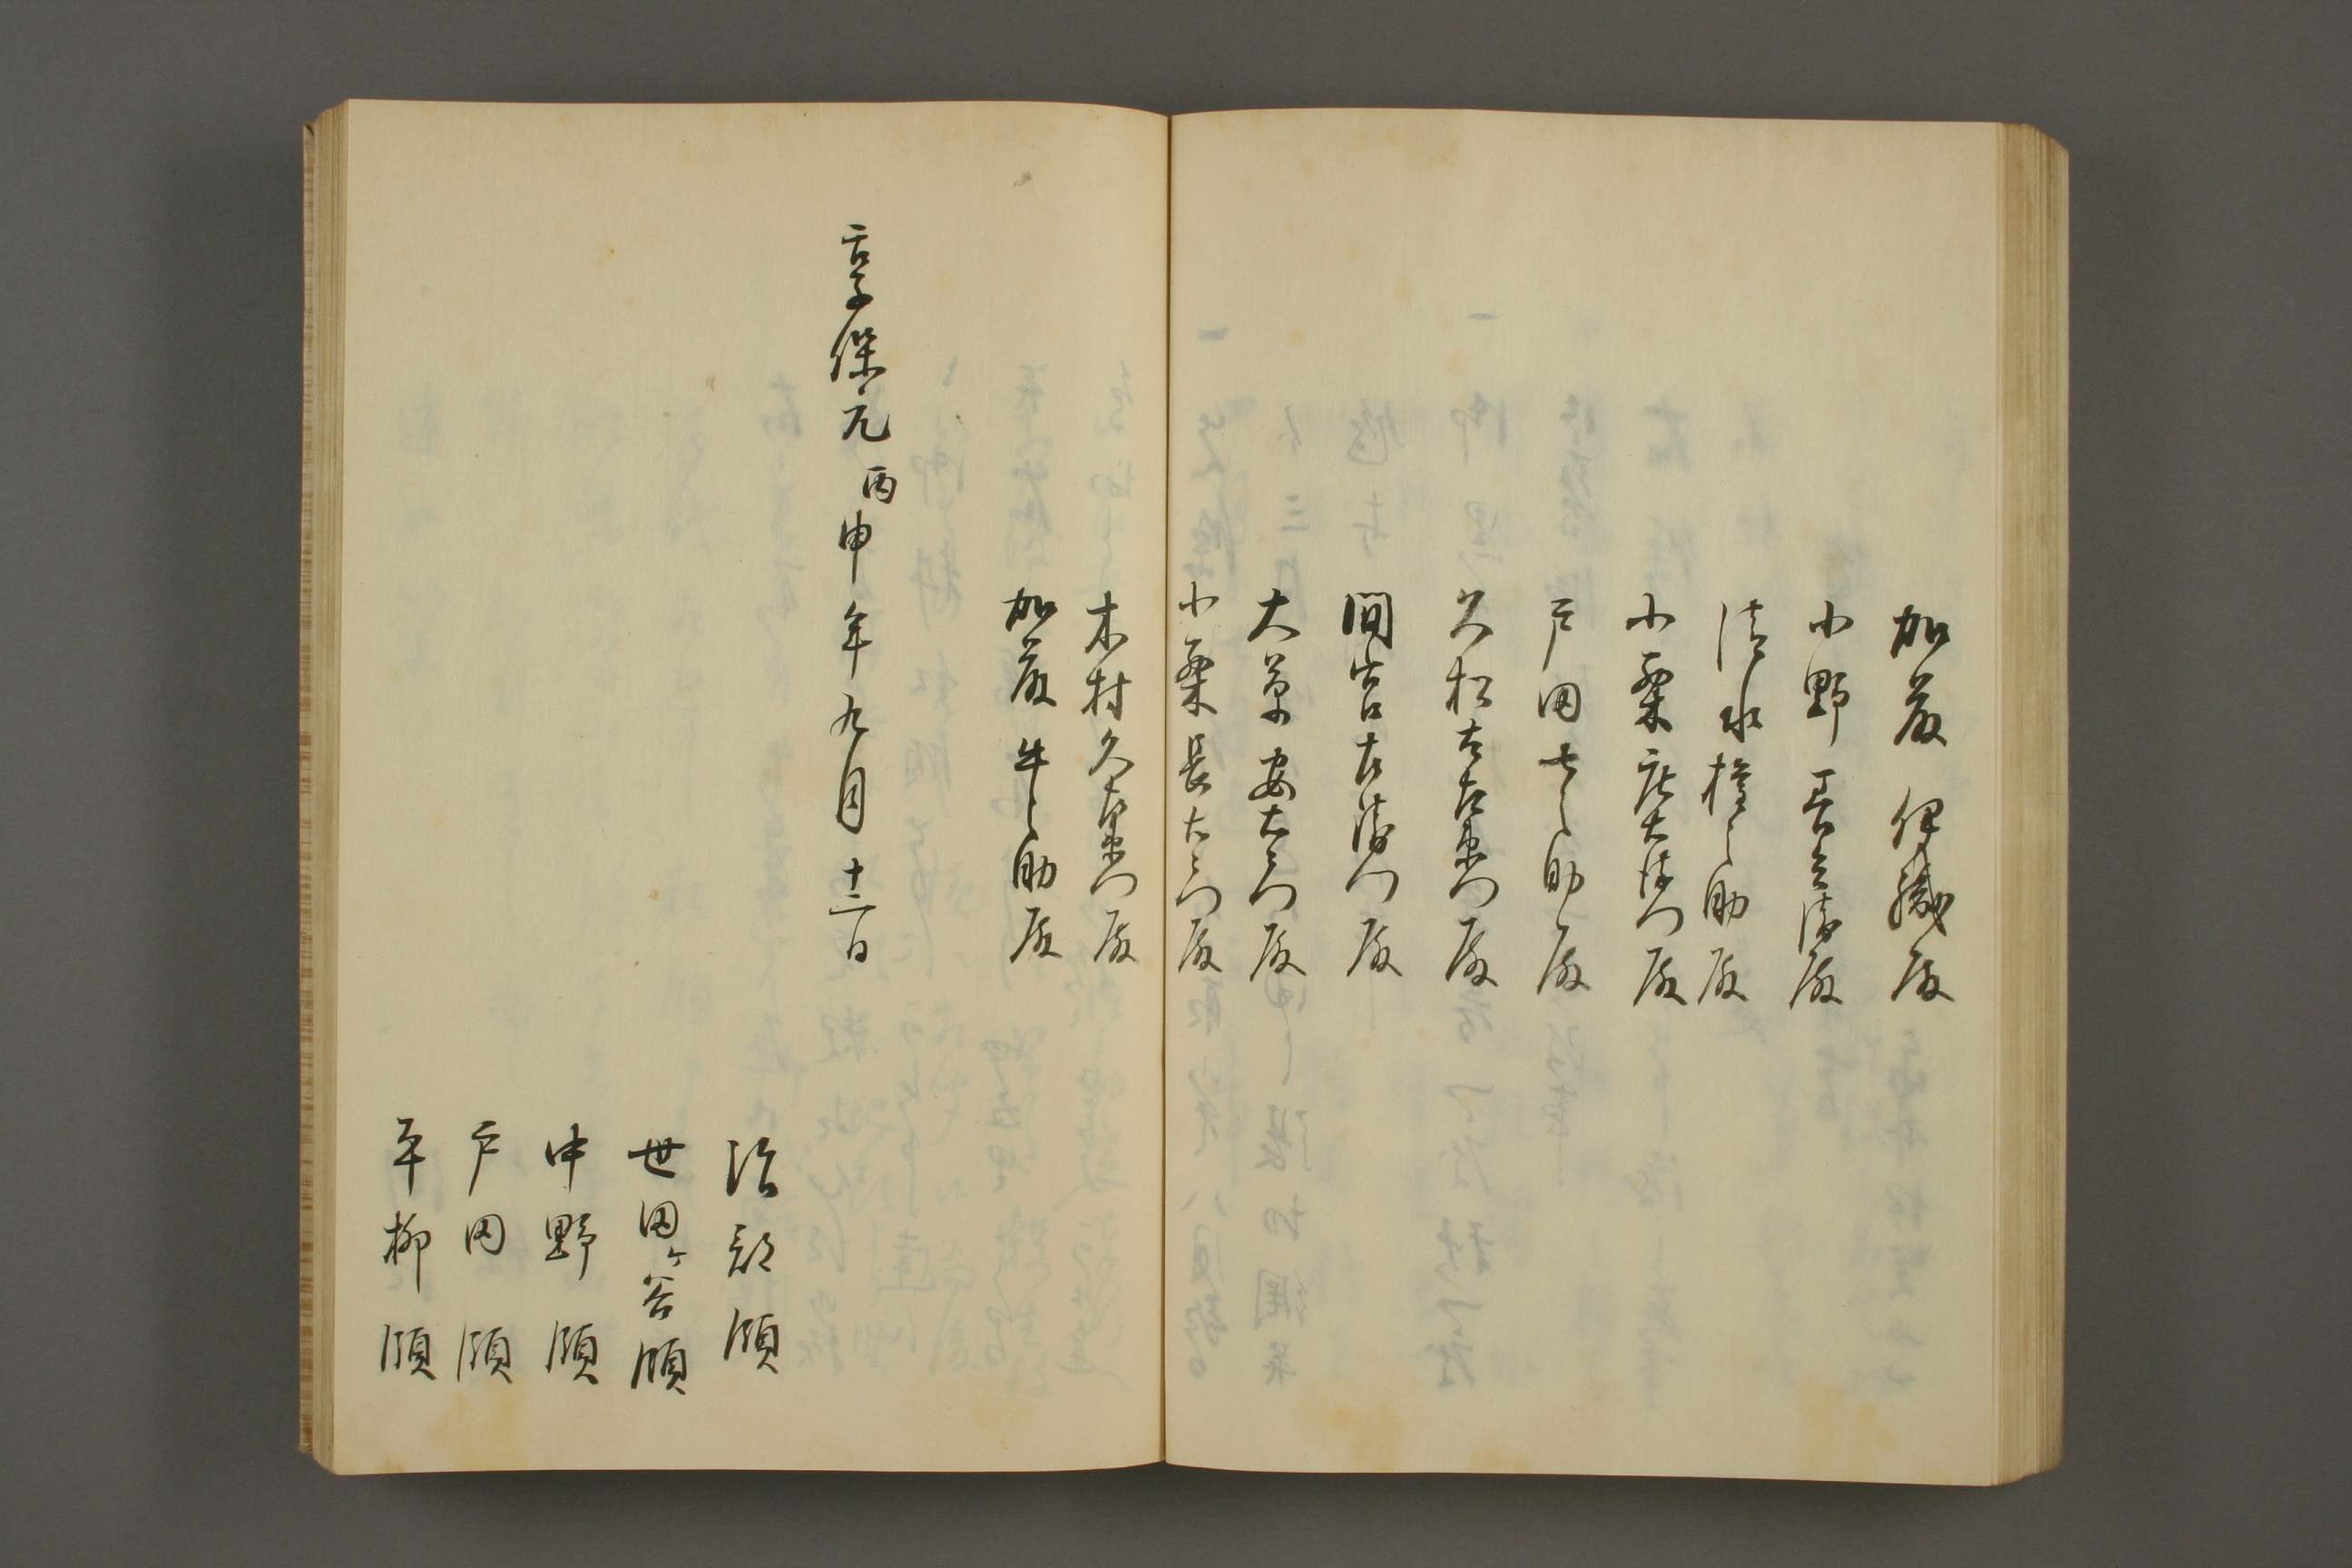 加藤伊織殿
小野吉兵衛殿
清水権之助殿
小栗庄大夫殿
戸田七之助殿
久松左兵衛門殿
間宮左衛門殿
大草安右衛門殿
小栗長右衛門殿
木村久兵衛門殿
加藤牛之助殿
享保元丙申年九月十二日
沼部領
世田ヶ谷領
中野領
戸田領
平柳領